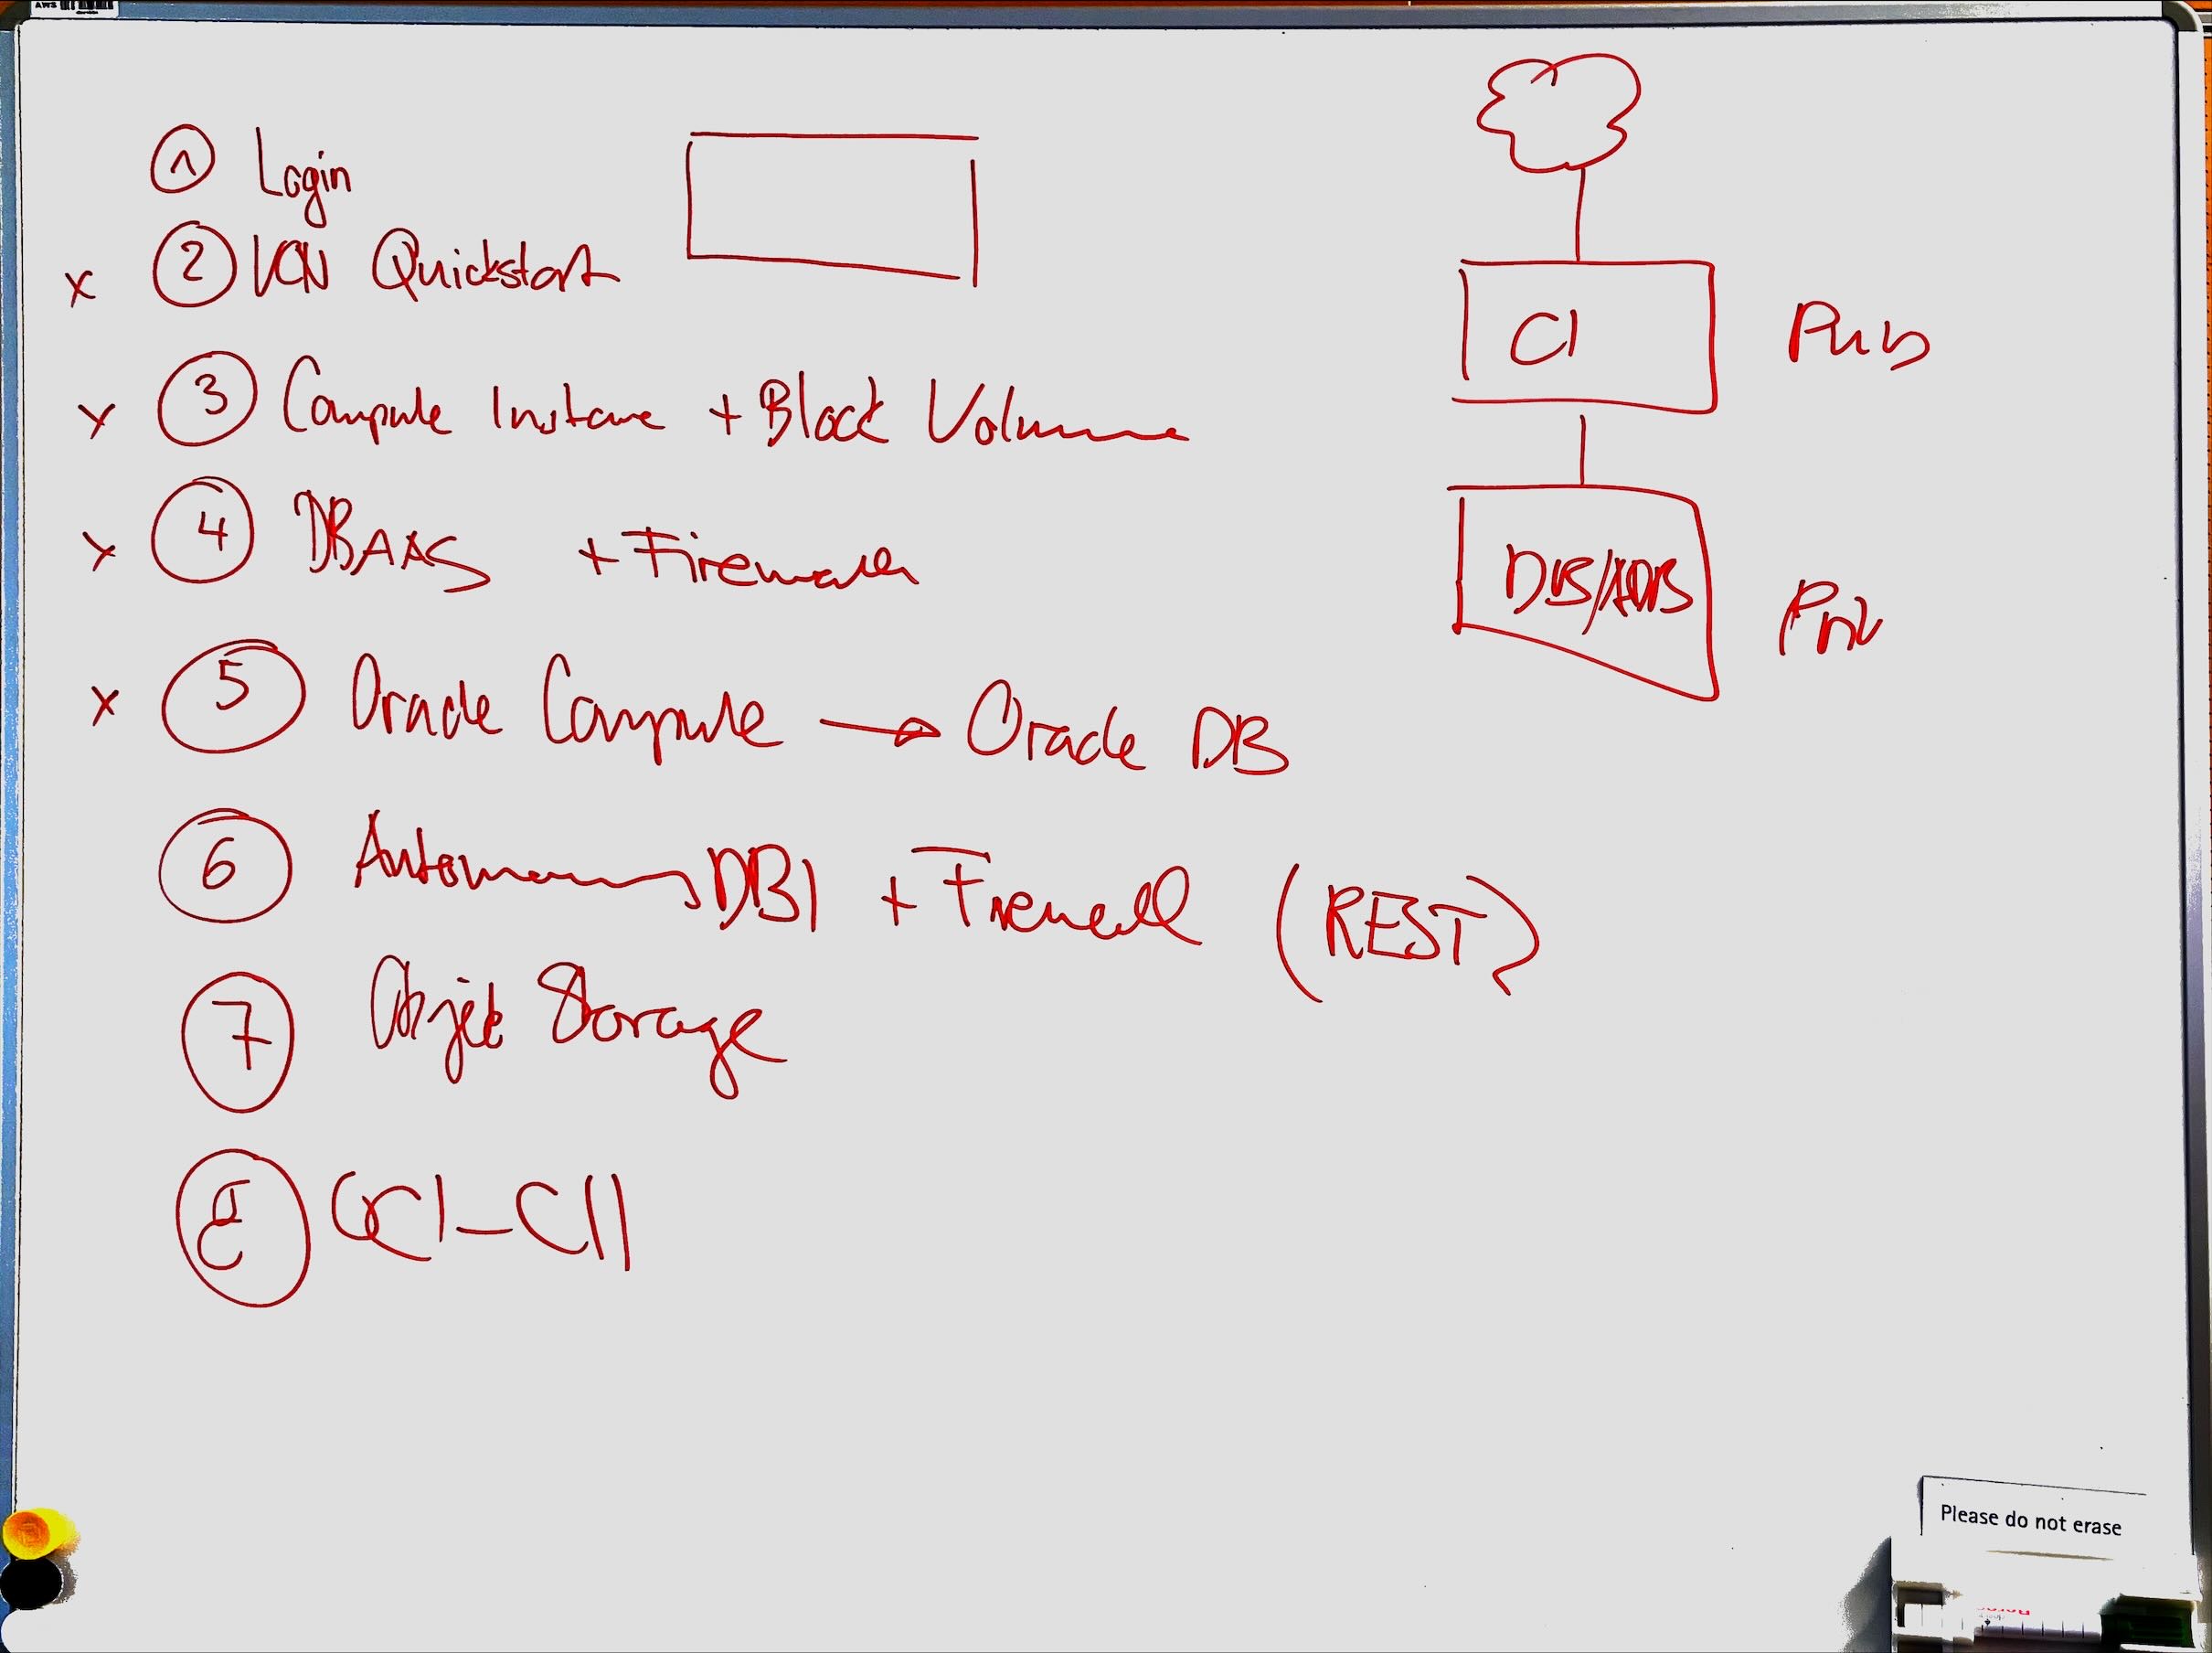 AWS
1 Login
x 2 VCN Quickstart
x 3 Compute Instance + Block Volume
x 4 DBAAS + Firewall
x 5 Oracle Compute → Oracle DB
6 Autonomous DB + Firewall (REST)
7 Objekt Storage
8 OCI-Cli
CI
Pub
DB/ADB
Priv
Please do not erase